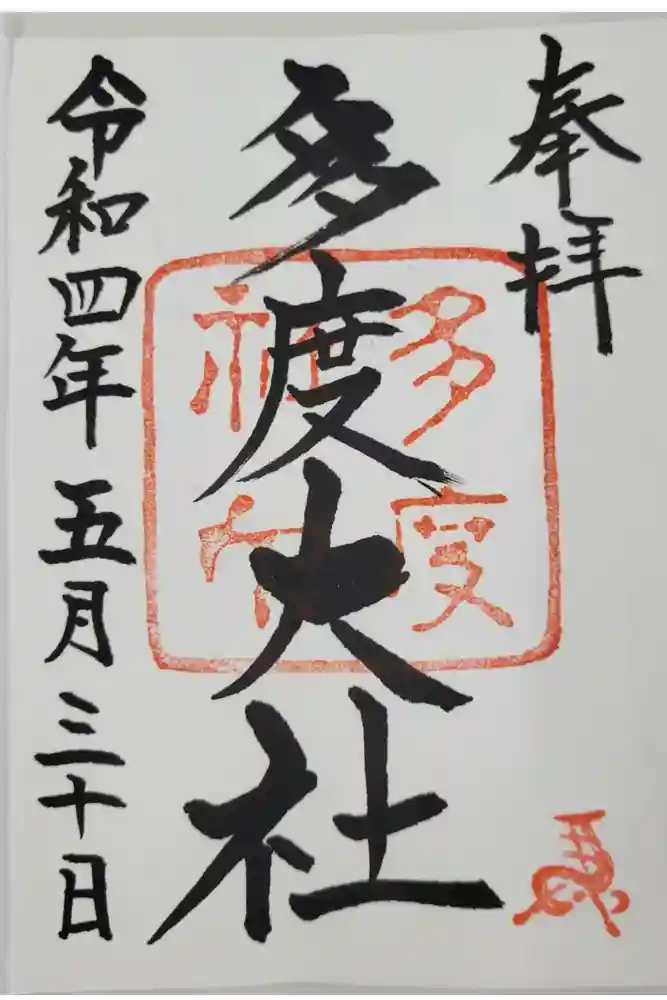 奉拝
多度大社
多度
神社
令和四年五月三十日